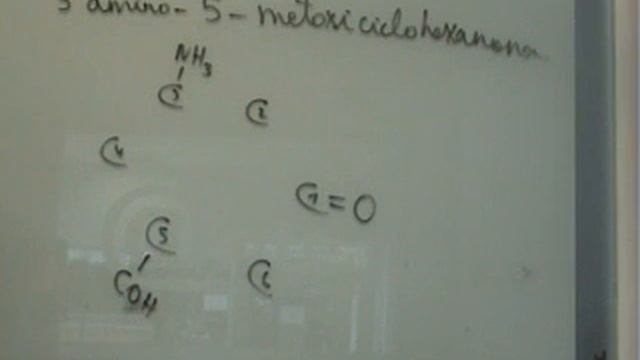 3 amino - 5 - metoxiciclohexanona
NH3
C3 C2
C4
C1 = O
C5
COH C6